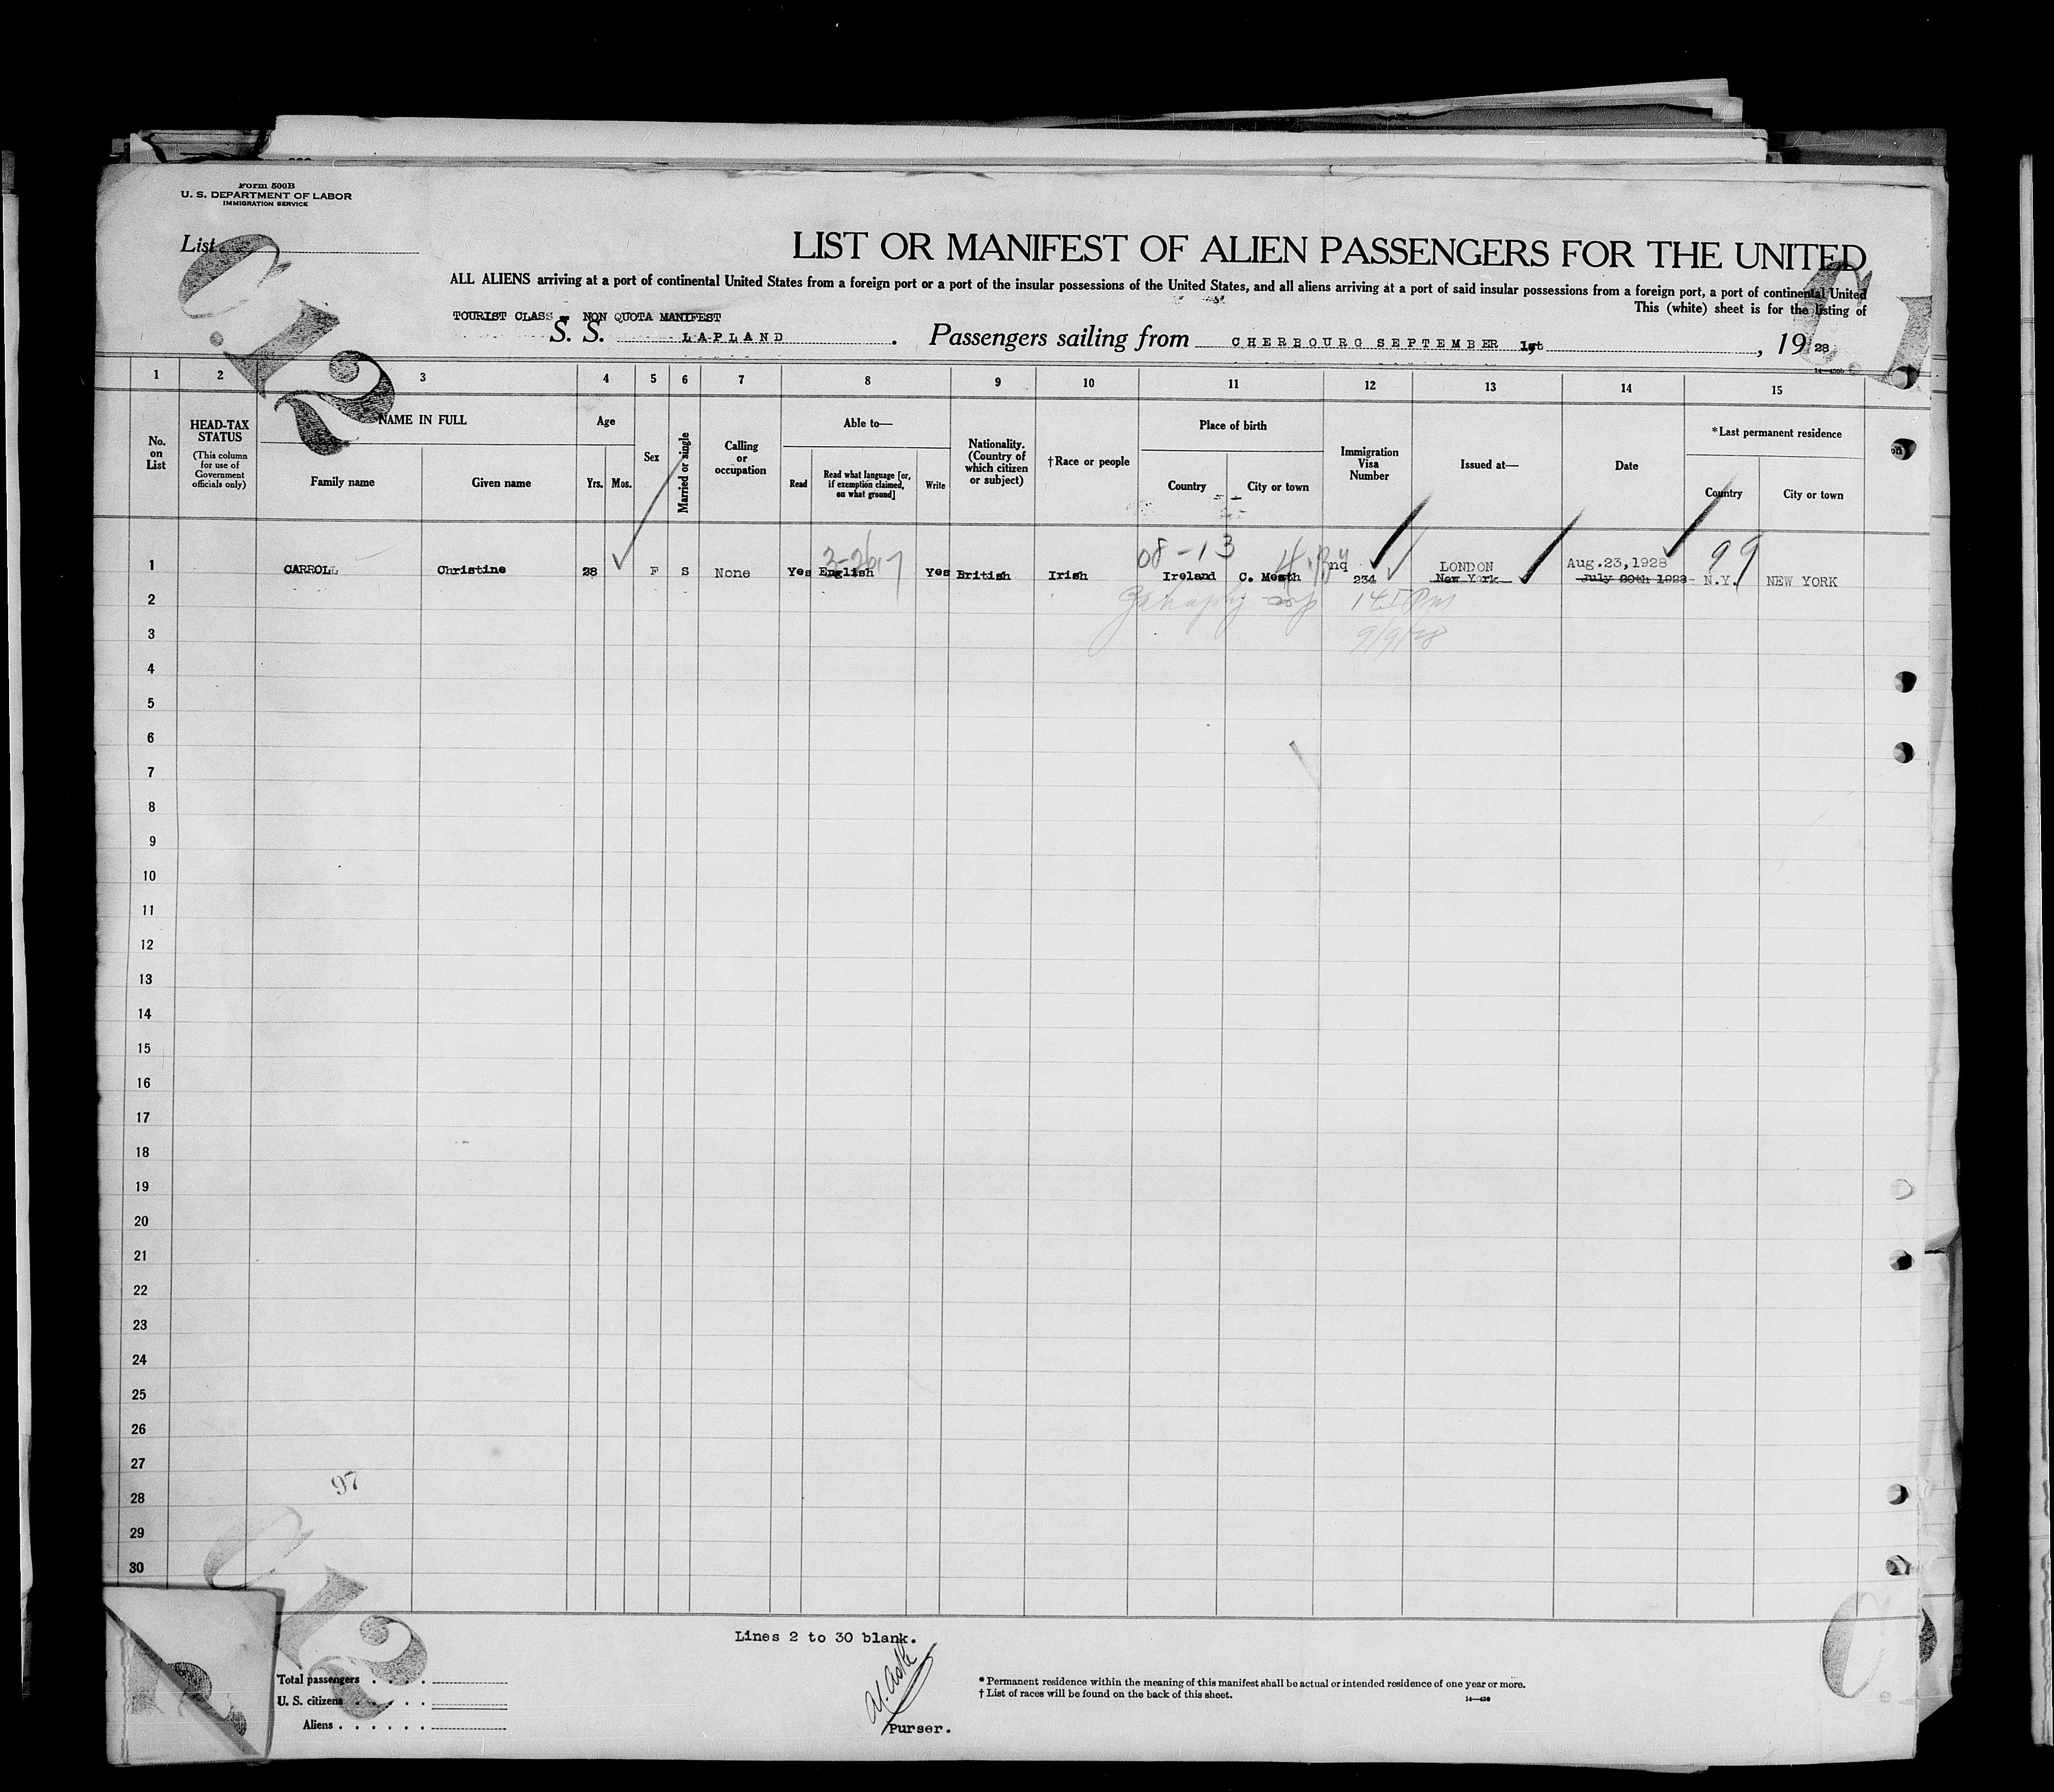 Form 500B
U. S. DEPARTMENT OF LABOR
IMMIGRATION SERVICE
List
LIST OR MANIFEST OF ALIEN PASSENGERS FOR THE UNITED
ALL ALIENS arriving at a port of continental United States from a foreign port or a port of the insular possessions of the United States, and all aliens arriving at a port of said insular possessions from a foreign port, a port of continental United
This (white) sheet is for the listing of
TOURIST CLASS - NON QUOTA MANIFEST
S. S. LAPLAND. Passengers sailing from CHERBOURG SEPTEMBER 1st, 1928
14—430b
1 2 3 4 5 6 7 8 9 10 11 12 13 14 15
No. on List
HEAD-TAX STATUS
(This column for use of Government officials only)
NAME IN FULL
Family name
Given name
Age
Yrs. Mos.
Sex
Married or single
Calling or occupation
Able to—
Read
Read what language [or, if exemption claimed, on what ground]
Write
Nationality. (Country of which citizen or subject)
†Race or people
Place of birth
Country
City or town
Immigration Visa Number
Issued at—
Date
*Last permanent residence
Country
City or town
08-13 99
nq LONDON Aug.23,1928
1 CARROLL Christine 28 F S None Yes English Yes British Irish Ireland C. Meath 234 New York July 20th 1928 N.Y. NEW YORK
2
9/9/28
3
4
5
6
7
8
9
10
11
12
13
14
15
16
17
18
19
20
21
22
23
24
25
26
27
97
28
29
30
Lines 2 to 30 blank.
Total passengers
U. S. citizens
Aliens
Purser.
* Permanent residence within the meaning of this manifest shall be actual or intended residence of one year or more.
† List of races will be found on the back of this sheet.
14—430